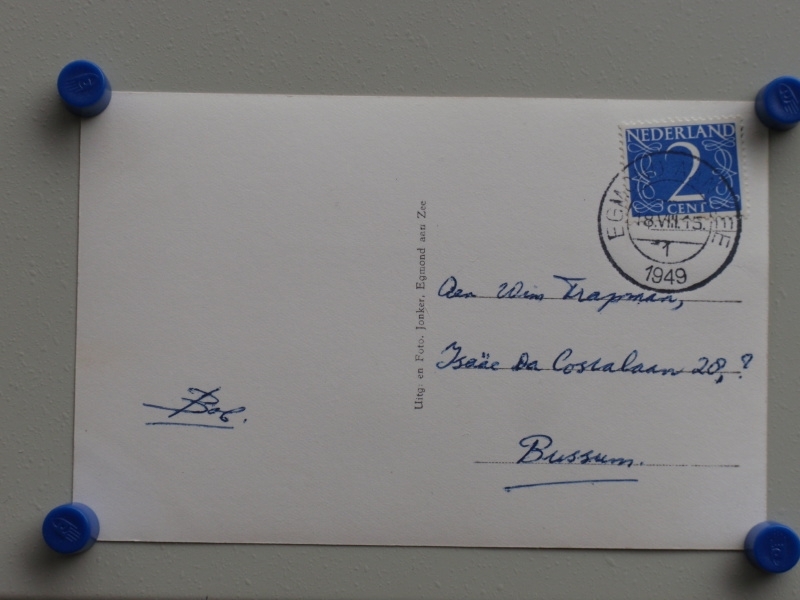 NEDERLAND
2
CENT
EGM
8.VIII.15.
1
1949
Uitg: en Foto. Jonker, Egmond aan Zee
Aan Wim Trapman,
Isaäc Da Costalaan 28,?
Bussum.
Bob.